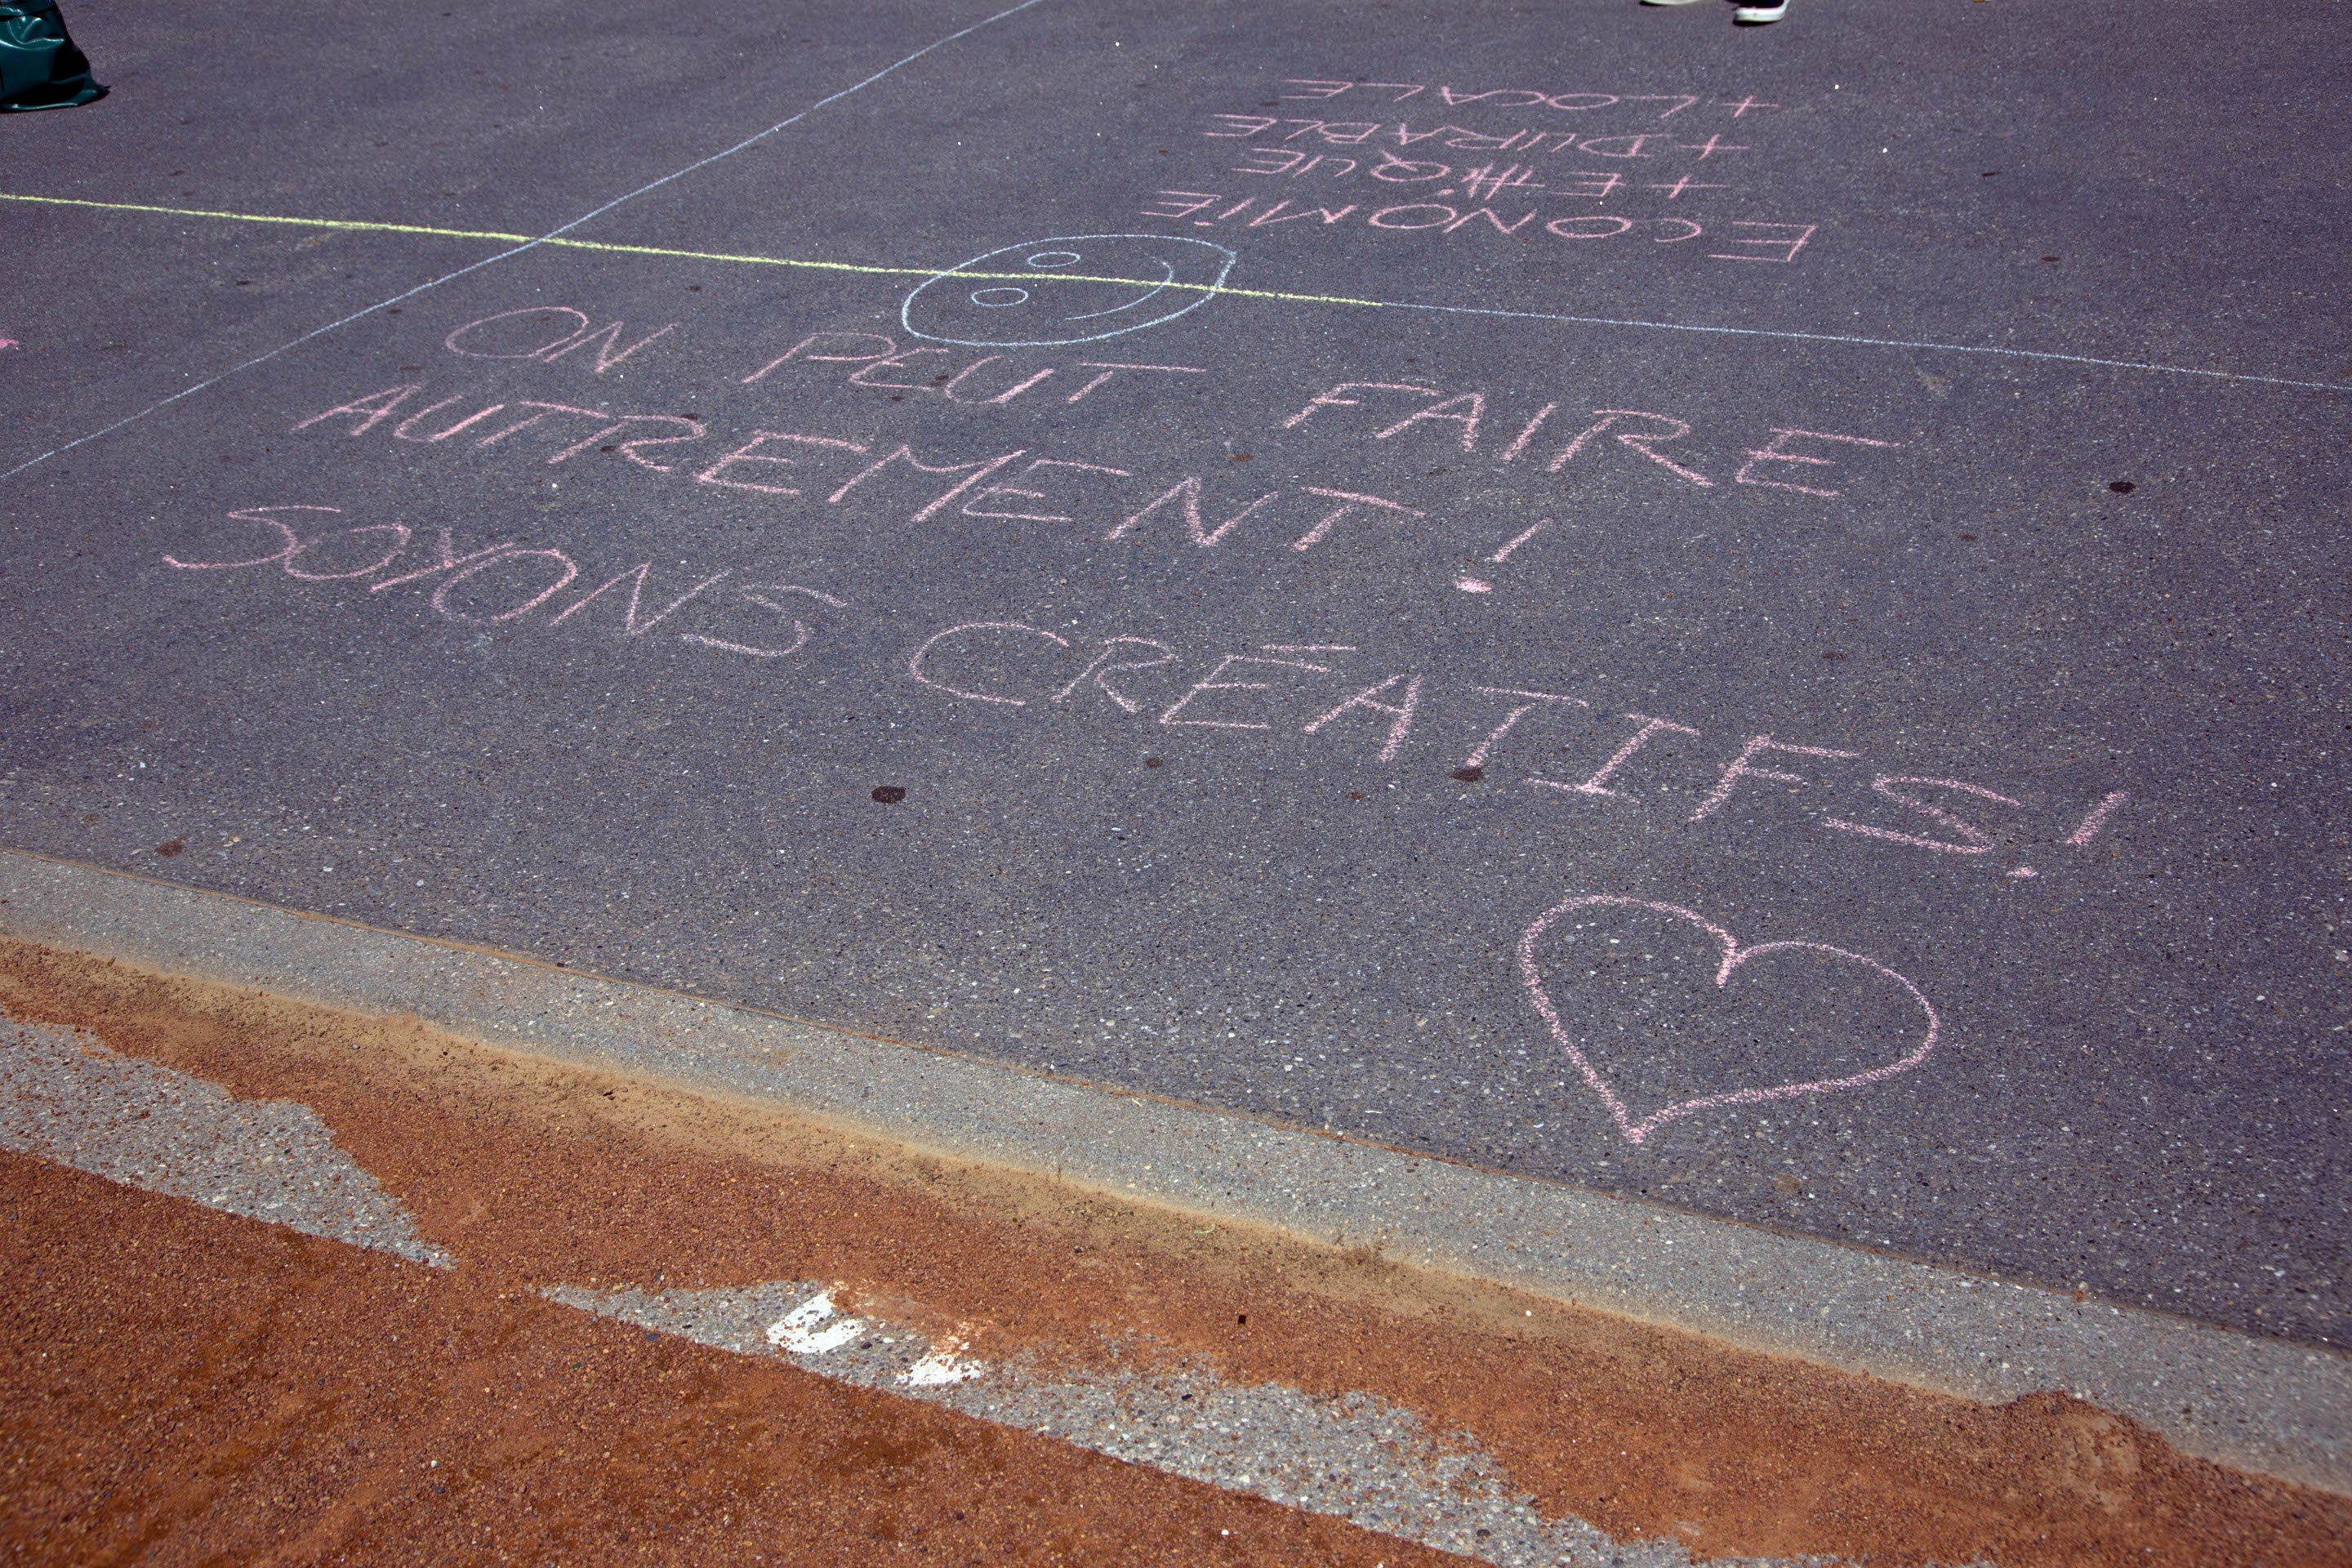 ON PEUT FAIRE
AUTREMENT !
SOYONS CRÉATIFS !
ECONOMIE
+ ETHIQUE
+ DURABLE
+ LOCALE